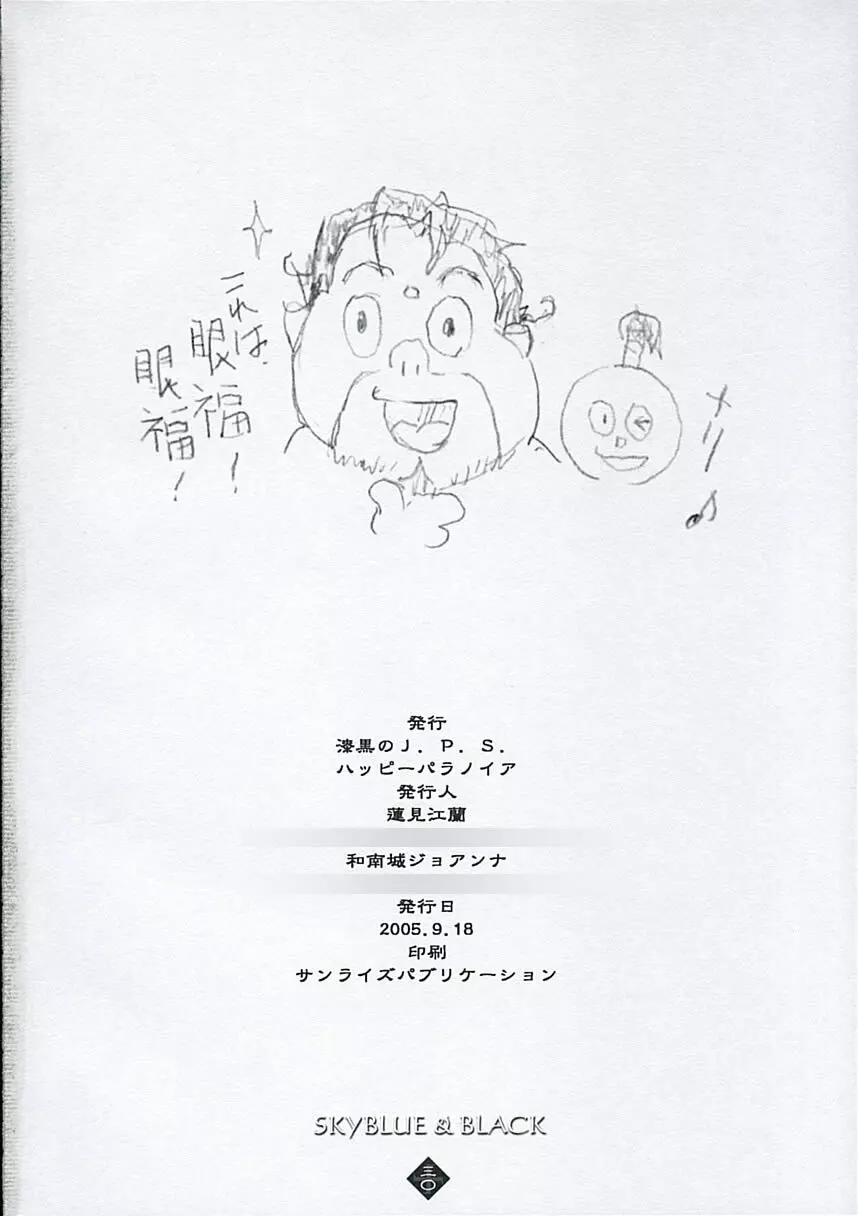 これは
眼福!
眼福!
メリー♪
発行
漆黒のJ.P.S.
ハッピーパラノイア
発行人
蓮見江蘭
和南城ジョアンナ
発行日
2005.9.18
印刷
サンライズパブリケーション
SKYBLUE & BLACK
三〇